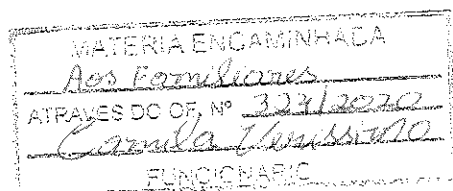 MATERIA ENCAMINHADA
Aos Familiares
ATRAVES DO OF. Nº 323/2020
Camila Verissimo
FUNCIONARIO